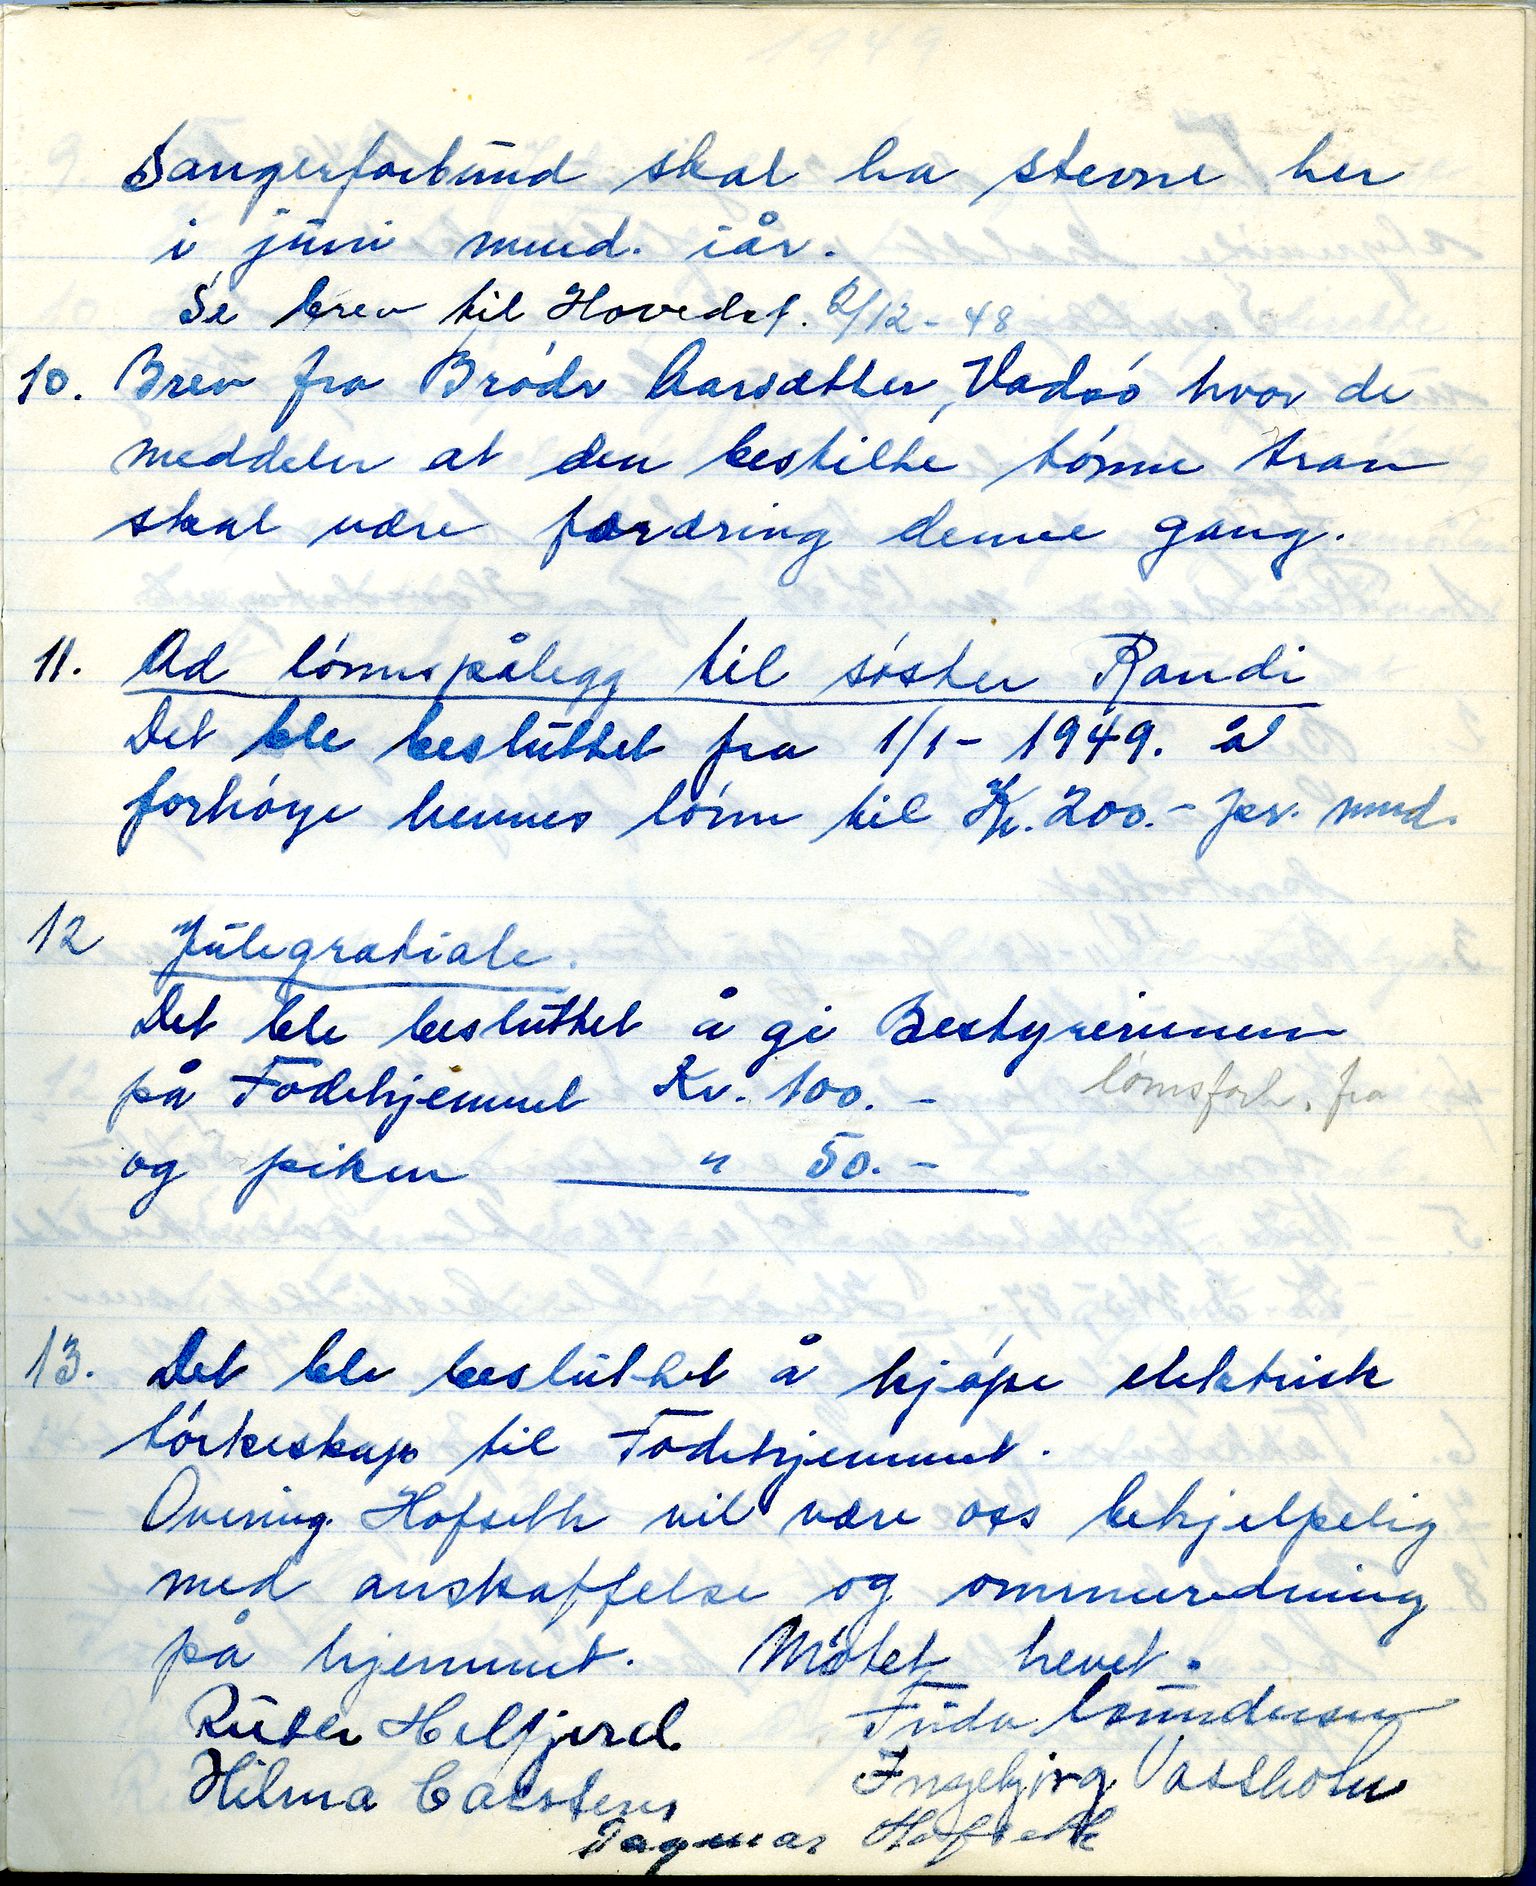 Sangerforbund skal ha stevne her
i juni mnd. iår.
Se brev til Hovedst. 2/12-48
10. Brev fra Brødr Aarsæther, Vadsø hvor de
meddeler at den bestilte tønne tran
skal være foræring denne gang.
11. Ad lønnspålegg til søster Randi
Det ble besluttet fra 1/1-1949. å
forhøye hennes lønn til Kr. 200.- pr. mnd.
12 Julegratiale.
Det ble besluttet å gi Bestyrerinnen
på Fødehjemmet Kr. 100.-
lønnsforh. fra
og piken " 50.-
13. Det ble besluttet å kjøpe elektrisk
tørkeskap til Fødehjemmet.
Overing. Hofseth vil være oss behjelpelig
med anskaffelse og ommuredning
på hjemmet. Møtet hevet.
Helfjord Frida
Hilma Carstens Ingebjørg Vassholm
Dagmar Hofseth